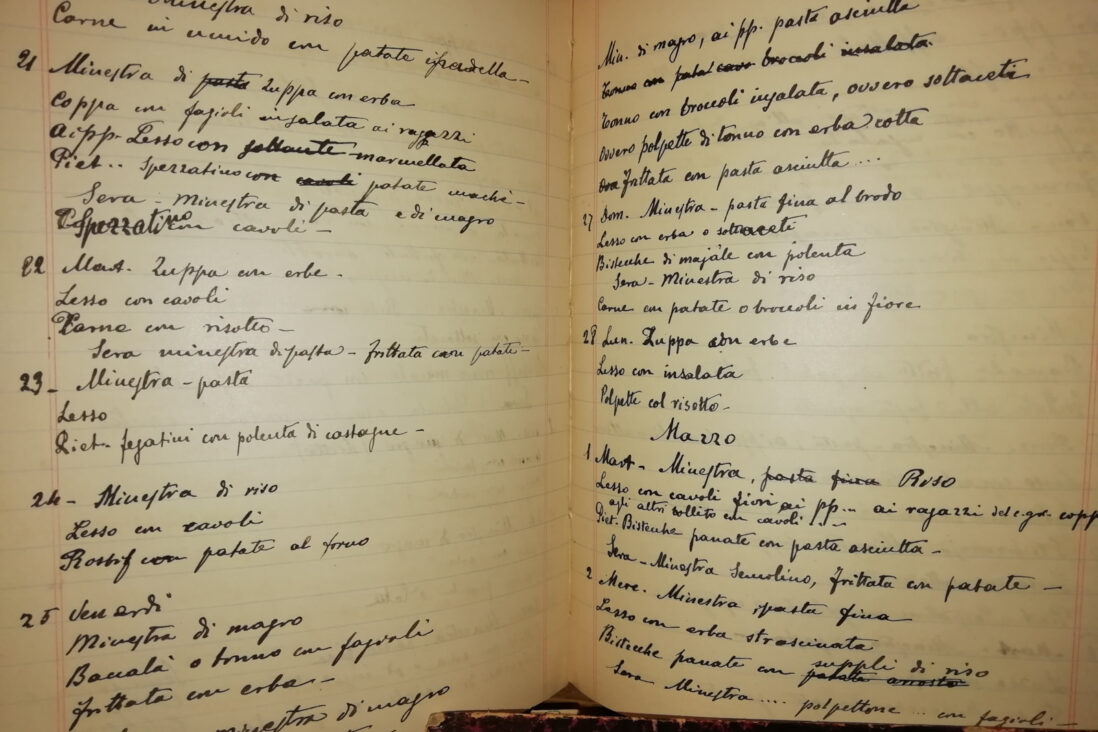 Minestra di riso
Carne in umido con patate
21 Minestra di pasta Zuppa con erba
Coppa con fagioli insalata ai ragazzi
Ai pp. Lesso con marmellata
Piet.. Spezzatino con cavoli patate
Sera - Minestra di pasta e di magro
Spezzatino con cavoli -
22 Mart. Zuppa con erbe -
Lesso con cavoli
Carne con risotto -
Sera minestra di pasta - frittata con patate -
23 - Minestra - pasta
Lesso
Piet - fegatini con polenta di castagne -
24 - Minestra di riso
Lesso con cavoli
Rosbif con patate al forno
25 Venerdì
Minestra di magro
Baccalà o tonno con fagioli
frittata con erba -
minestra di magro
Min. di magro, ai pp. pasta asciutta
tonno con broccoli insalata
tonno con broccoli insalata, ovvero sottaceti
ovvero polpette di tonno con erba cotta
frittata con pasta asciutta ...
27 Dom. Minestra - pasta fina al brodo
Lesso con erba o sottaceti
Bistecche di majale con polenta
Sera - Minestra di riso
Carne con patate o broccoli in fiore
28 Lun. Zuppa con erbe
Lesso con insalata
Polpette col risotto -
Marzo
1 Mart - Minestra, pasta fina Riso
Lesso con cavoli fiori ai pp... ai ragazzi del c. gr. copp
agli altri sollito con cavoli . . . .
Piet. Bistecche panate con pasta asciutta -
Sera - Minestra Semolino, frittata con patate -
2 Merc. Minestra, pasta fina
Lesso con erba strascinata
Bistecche panate con supplì di riso
patate arrosto
Sera Minestra .... polpettone ... con fagioli -